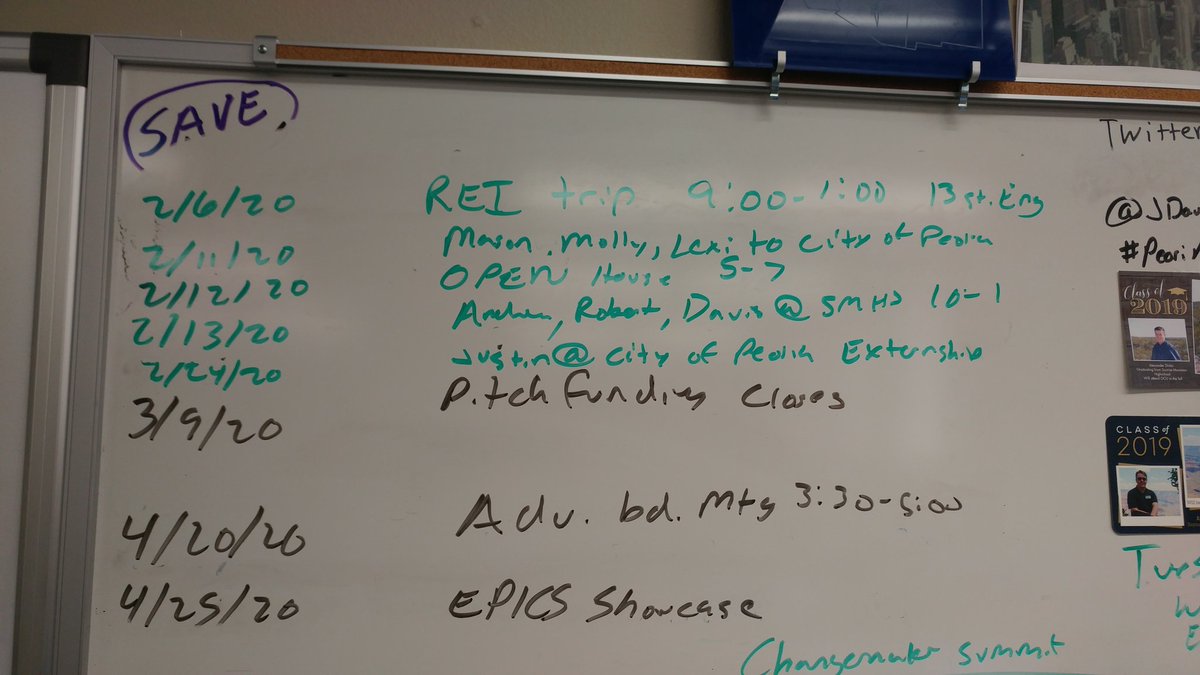 SAVE.
2/6/20 REI trip 9:00-1:00 13 st. Eng
2/11/20 Mason, Molly, Lexi to City of Peoria
2/12/20 OPEN House 5-7
2/13/20 Andrew, Robert, Davis @ SMHS 10-1
2/24/20 Justin @ City of Peoria Externship
3/9/20 Pitch Funding Closes
4/20/20 Adv. bd. Mtg 3:30-5:00
4/25/20 EPICS Showcase
Changemaker Summit
Twitter
@JDav
#Peori
Class of
2019
CLASS of
2019
Tues